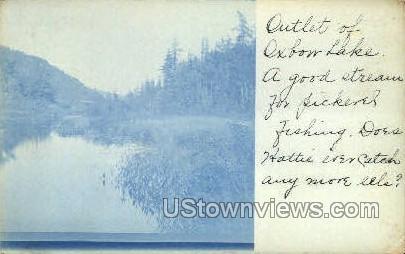 Outlet of
Oxbow Lake.
A good stream
for pickerel
fishing. Does
Hattie ever catch
any more eels?
www.USTownviews.com